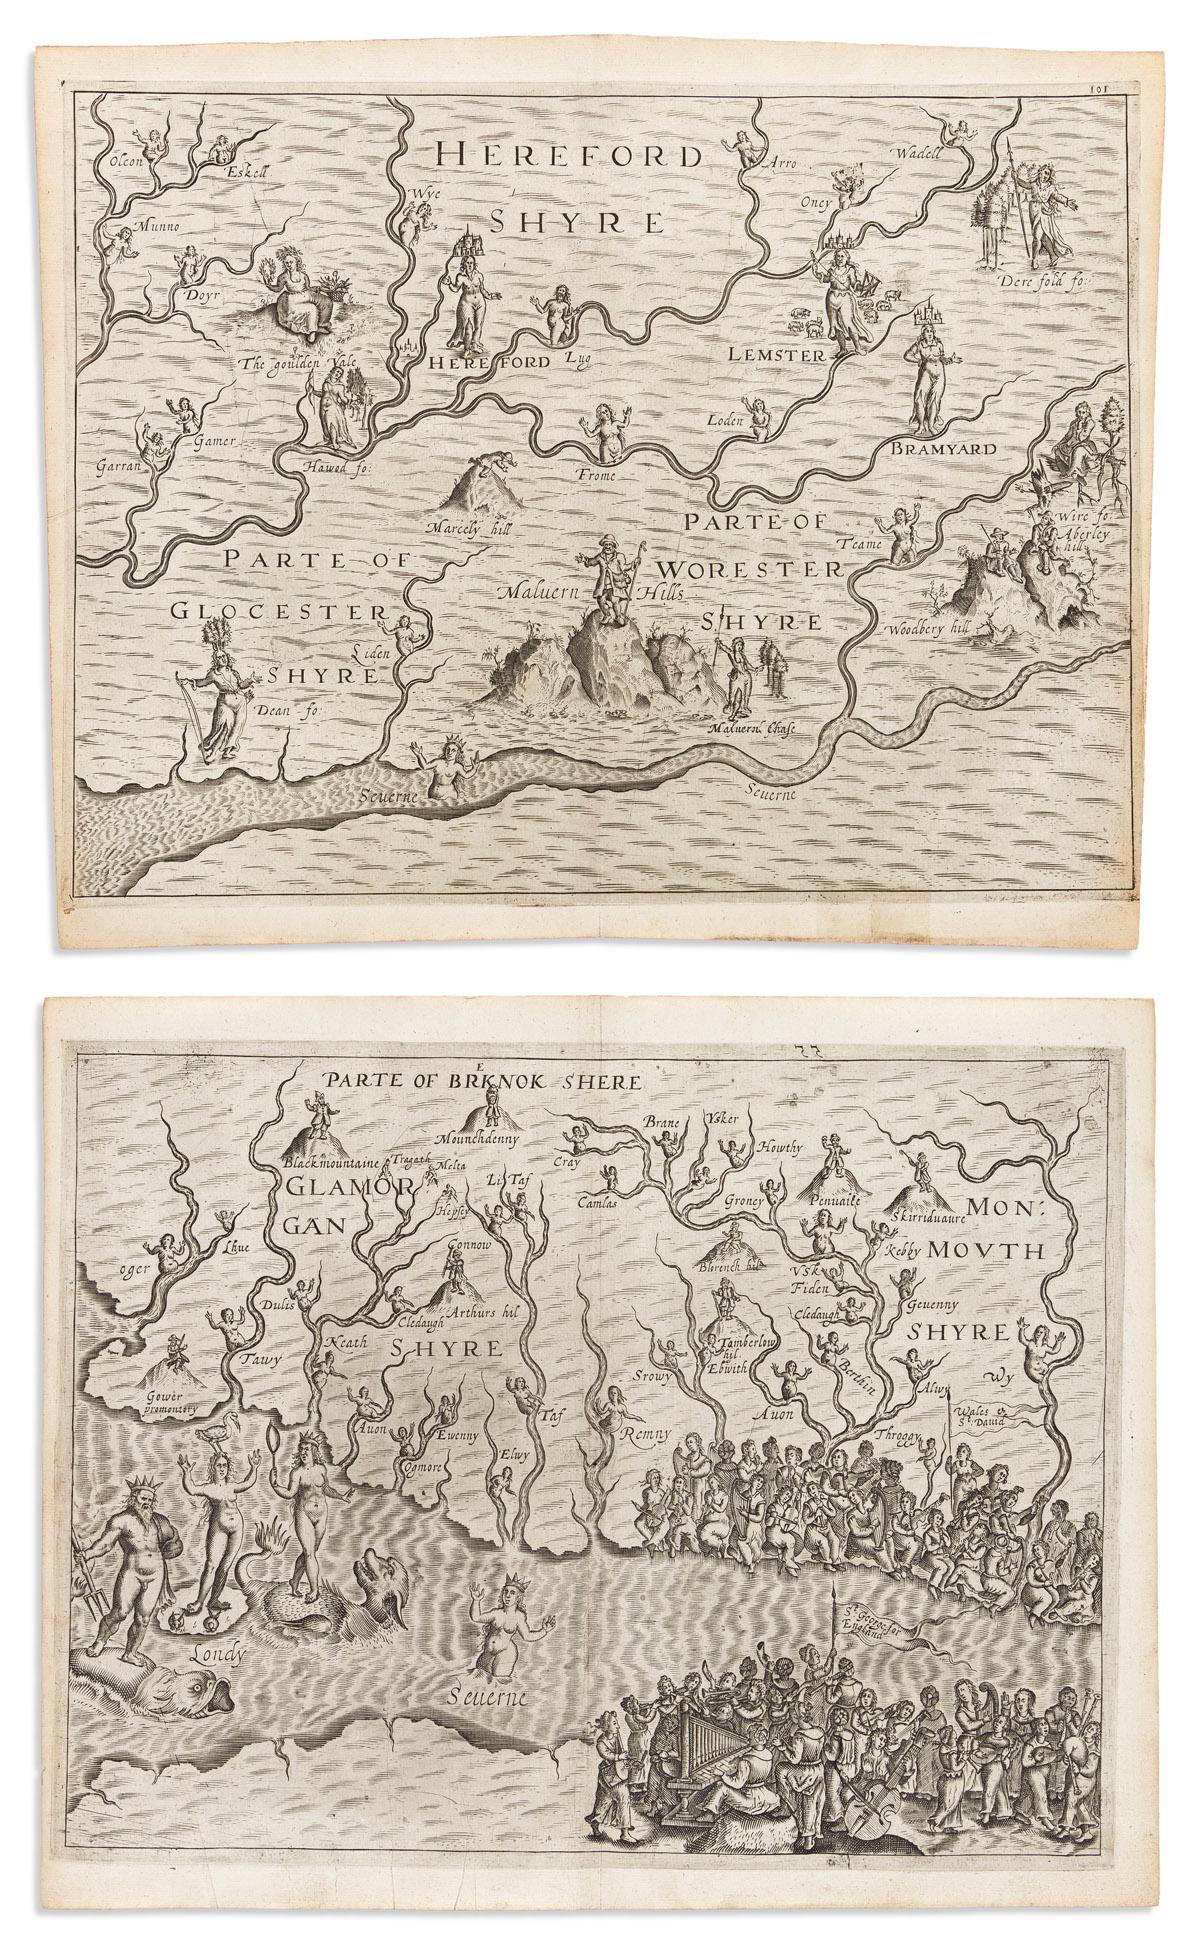 101
HEREFORD
SHYRE
Olcon
Eskell
Munno
Doyr
Wye
Arro
Oney
Wadell
Dere fold fo:
The goulden Vale
HEREFORD
Lug
LEMSTER
Gamer
Garran
Hawod fo:
Loden
BRAMYARD
Frome
Marcely hill
PARTE OF
GLOCESTER
SHYRE
Liden
Dean fo:
Malvern Hills
PARTE OF
WORESTER
SHYRE
Teame
Wire fo:
Aberley
hill
Woodbery hill
Severne
Severne
55
PARTE OF BRKNOK SHERE
E
Blackmountaine
Mounchdenny
Tragath
Melta
Hepsey
GLAMOR
GAN
SHYRE
Li: Taf
Connow
Lhue
oger
Dulis
Tawy
Neath
Cledaugh
Arthurs hil
Gower
promontory
Avon
Ewenny
Ogmore
Elwy
Taf
Remny
Cray
Camlas
Brane
Ysker
Howthy
Groney
Penvaile
Skirridvaure
MON:
MOVTH
SHYRE
Blorench hil
Vsk
Kebby
Fiden
Cledaugh
Gevenny
Srowy
Tamberlow
hil
Ebwith
Avon
Berthin
Alwy
Wy
Throggy
Wales &
St. David
Londy
Severne
St. George for
England